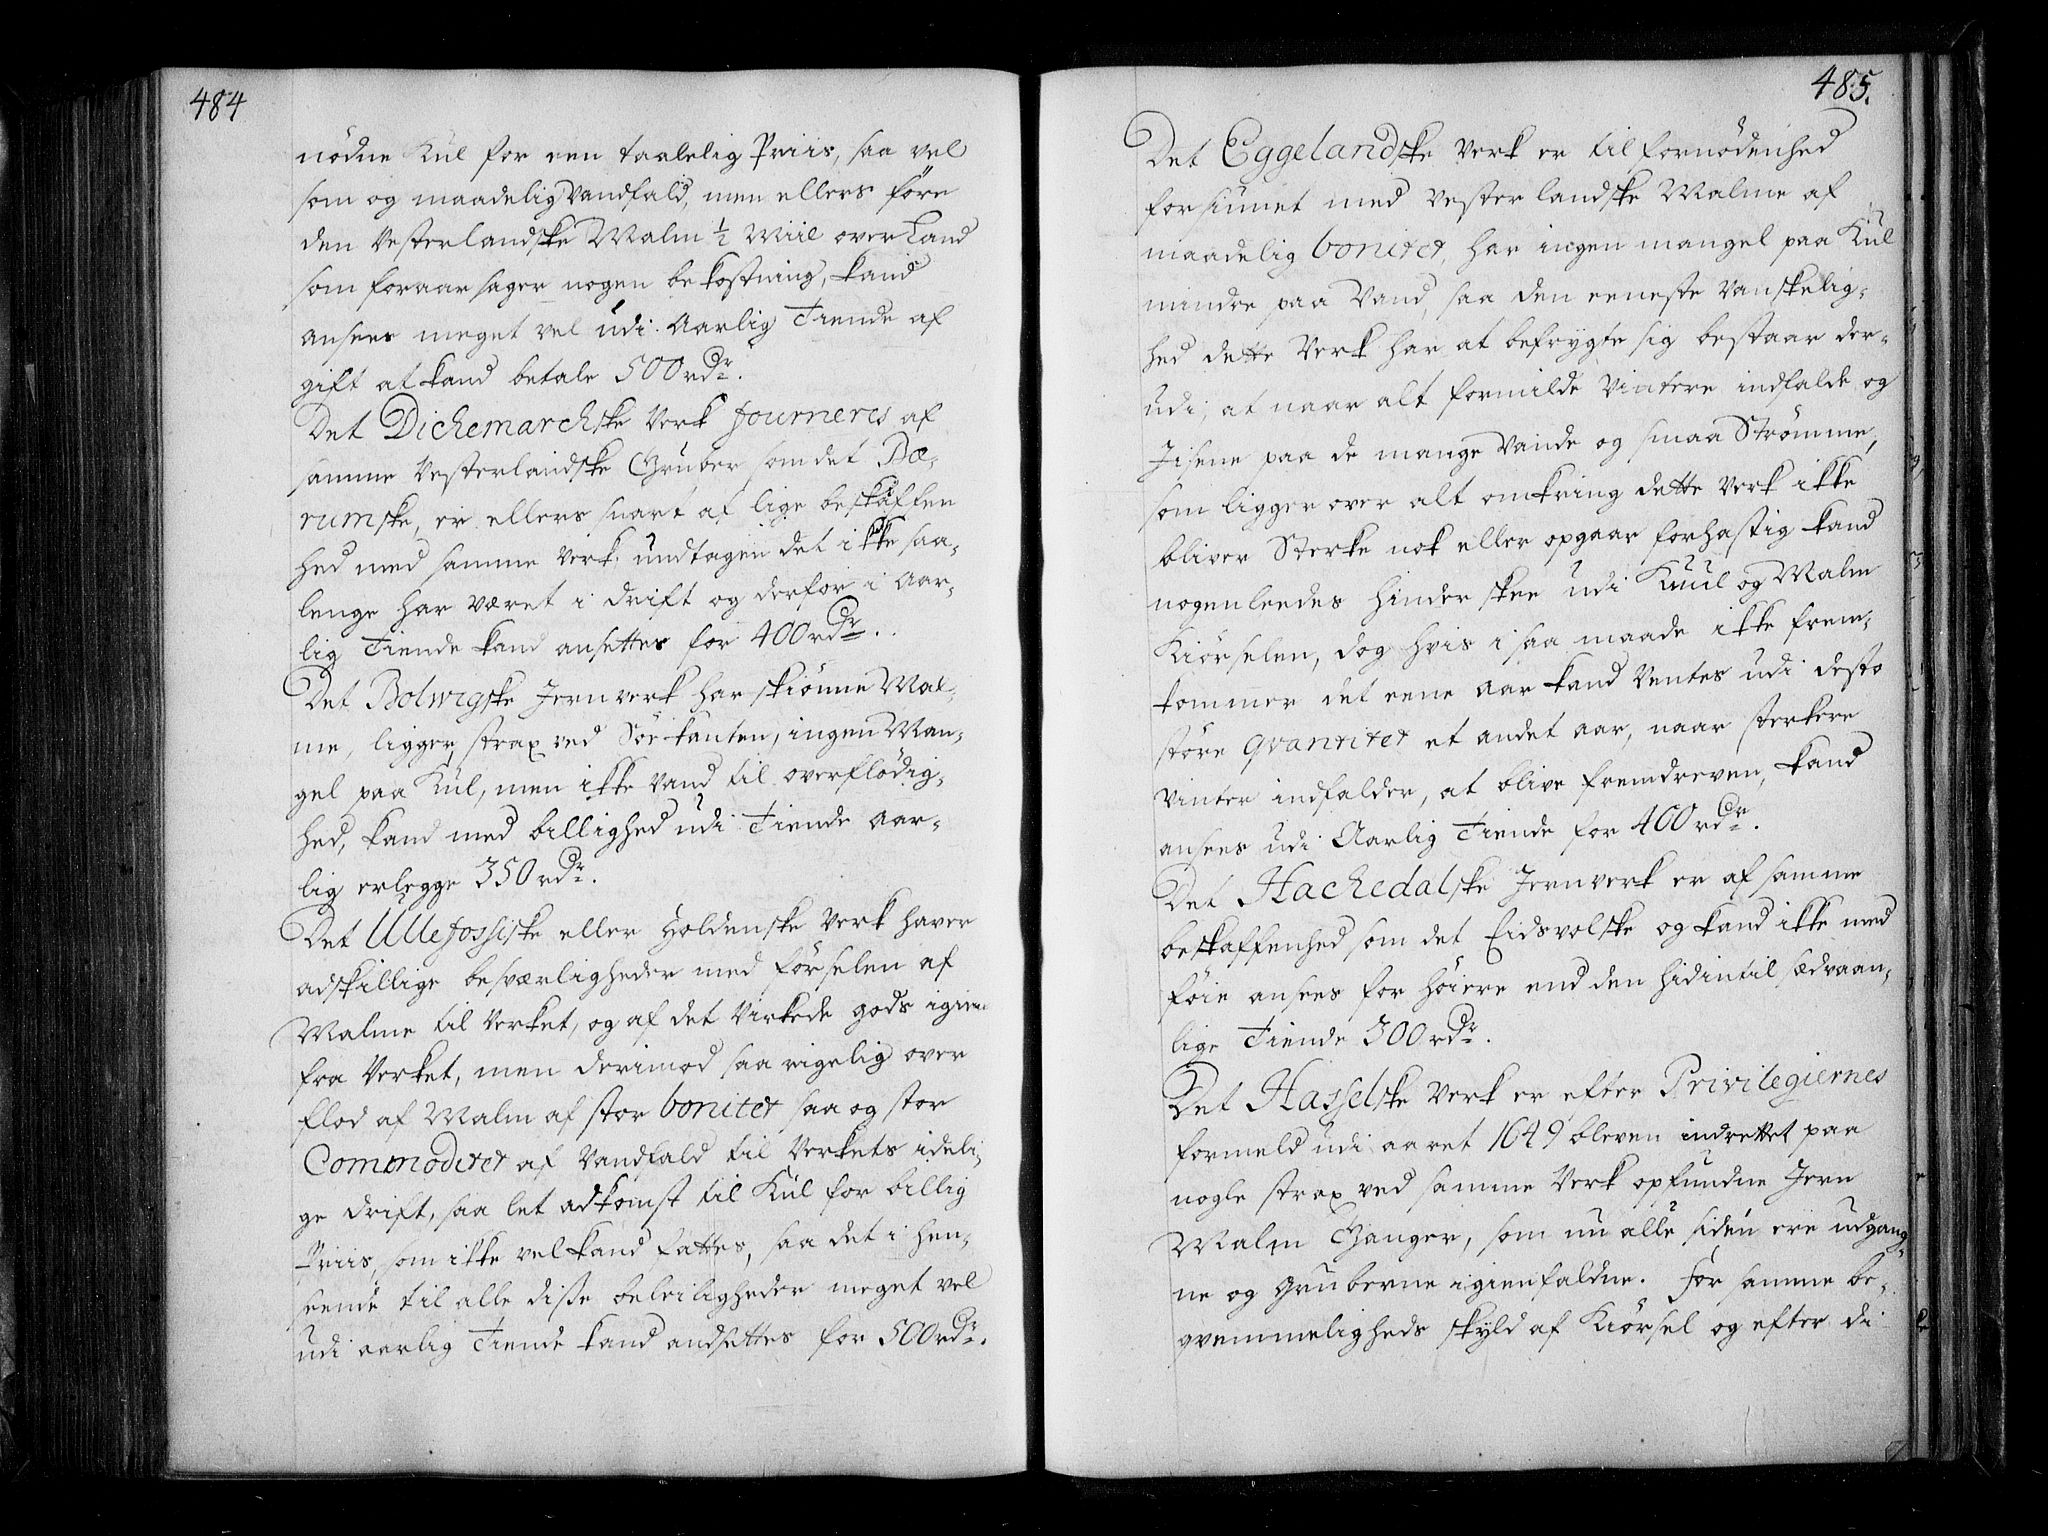 484
nödne Kul for een taalelig Priis, saa vel
som og maadelig Vandfald, men ellers före
den Vesterlandske Malm ½ Miil over Land
som foraarsager nogen bekostning, kand
ansees meget vel udi Aarlig Tiende af
gift at kand betale 500 rdr.
Det Dichemarchske Verk fourneres af
samme Vesterlandske Gruber som det Bæ-
rumske, er ellers snart af lige beskaffen
hed med samme Verk, undtagen det ikke saa-
lenge har været i drift og derfor i Aar-
lig Tiende kand ansettes for 400 rdr.
Det Bolwigske Jernverk har skiönne Mal-
me, ligger strax ved Söe kanten, ingen Man-
gel paa Kul, men ikke Vand til overflödig-
hed, kand med billighed udi Tiende Aar-
lig erlegge 350 rdr.
Det Ullefossiske eller Holdenske Verk haver
adskillige besværligheder med förselen af
Malme til Verket, og af det Virkede gods igien
fra Verket, men derimod saa rigelig over
flod af Malm af stor bonitet saa og stor
Commoditet af Vandfald til Verkets ideli-
ge drift, saa let adkomst til Kul for billig
Priis, som ikke vel kand fattes, saa det i hen-
seende til alle disse beleiligheder meget vel
udi aarlig Tiende kand andsettes for 500 rdr.
485.
Det Eggelandske Verk er til fornödenhed
forsiunet med Vesterlandske Malme af
maadelig bonitet, har ingen mangel paa Kul
mindre paa Vand, saa den eeneste Vanskelig-
hed dette Verk har at befrygte sig bestaar der-
udi, at naar alt formilde Vintere indfalde og
Jisene paa de mange Vande og smaa Strömme,
som ligger over alt omkring dette Verk ikke
bliver Sterke nok eller opgaar forhastig kand
nogenleedes hinder skee udi Kuul og Malm
Kiörselen, dog hvis i saa maade ikke frem-
kommer det eene Aar kand Ventes udi desto
störe qvantitet et andet aar, naar sterkere
Vinter indfalder, at blive fremdreven, kand
ansees udi Aarlig Tiende for 400 rdr.
Det Hachedalske Jernverk er af samme
beskaffenhed som det Eidsvolske og kand ikke med
föie ansees for höiere end den hidintil sædvaan-
lige Tiende 300 rdr.
Det Hasselske Verk er efter Privilegiernes
formeld udi aaret 1649 bleven indrettet paa
nogle strax ved samme Verk opfundne Jern
Malm Ganger, som nu alle siden ere udgang-
ne og Gruberne igienfaldne. For samme be-
qvemmeligheds skyld af Kiörsel og efter di